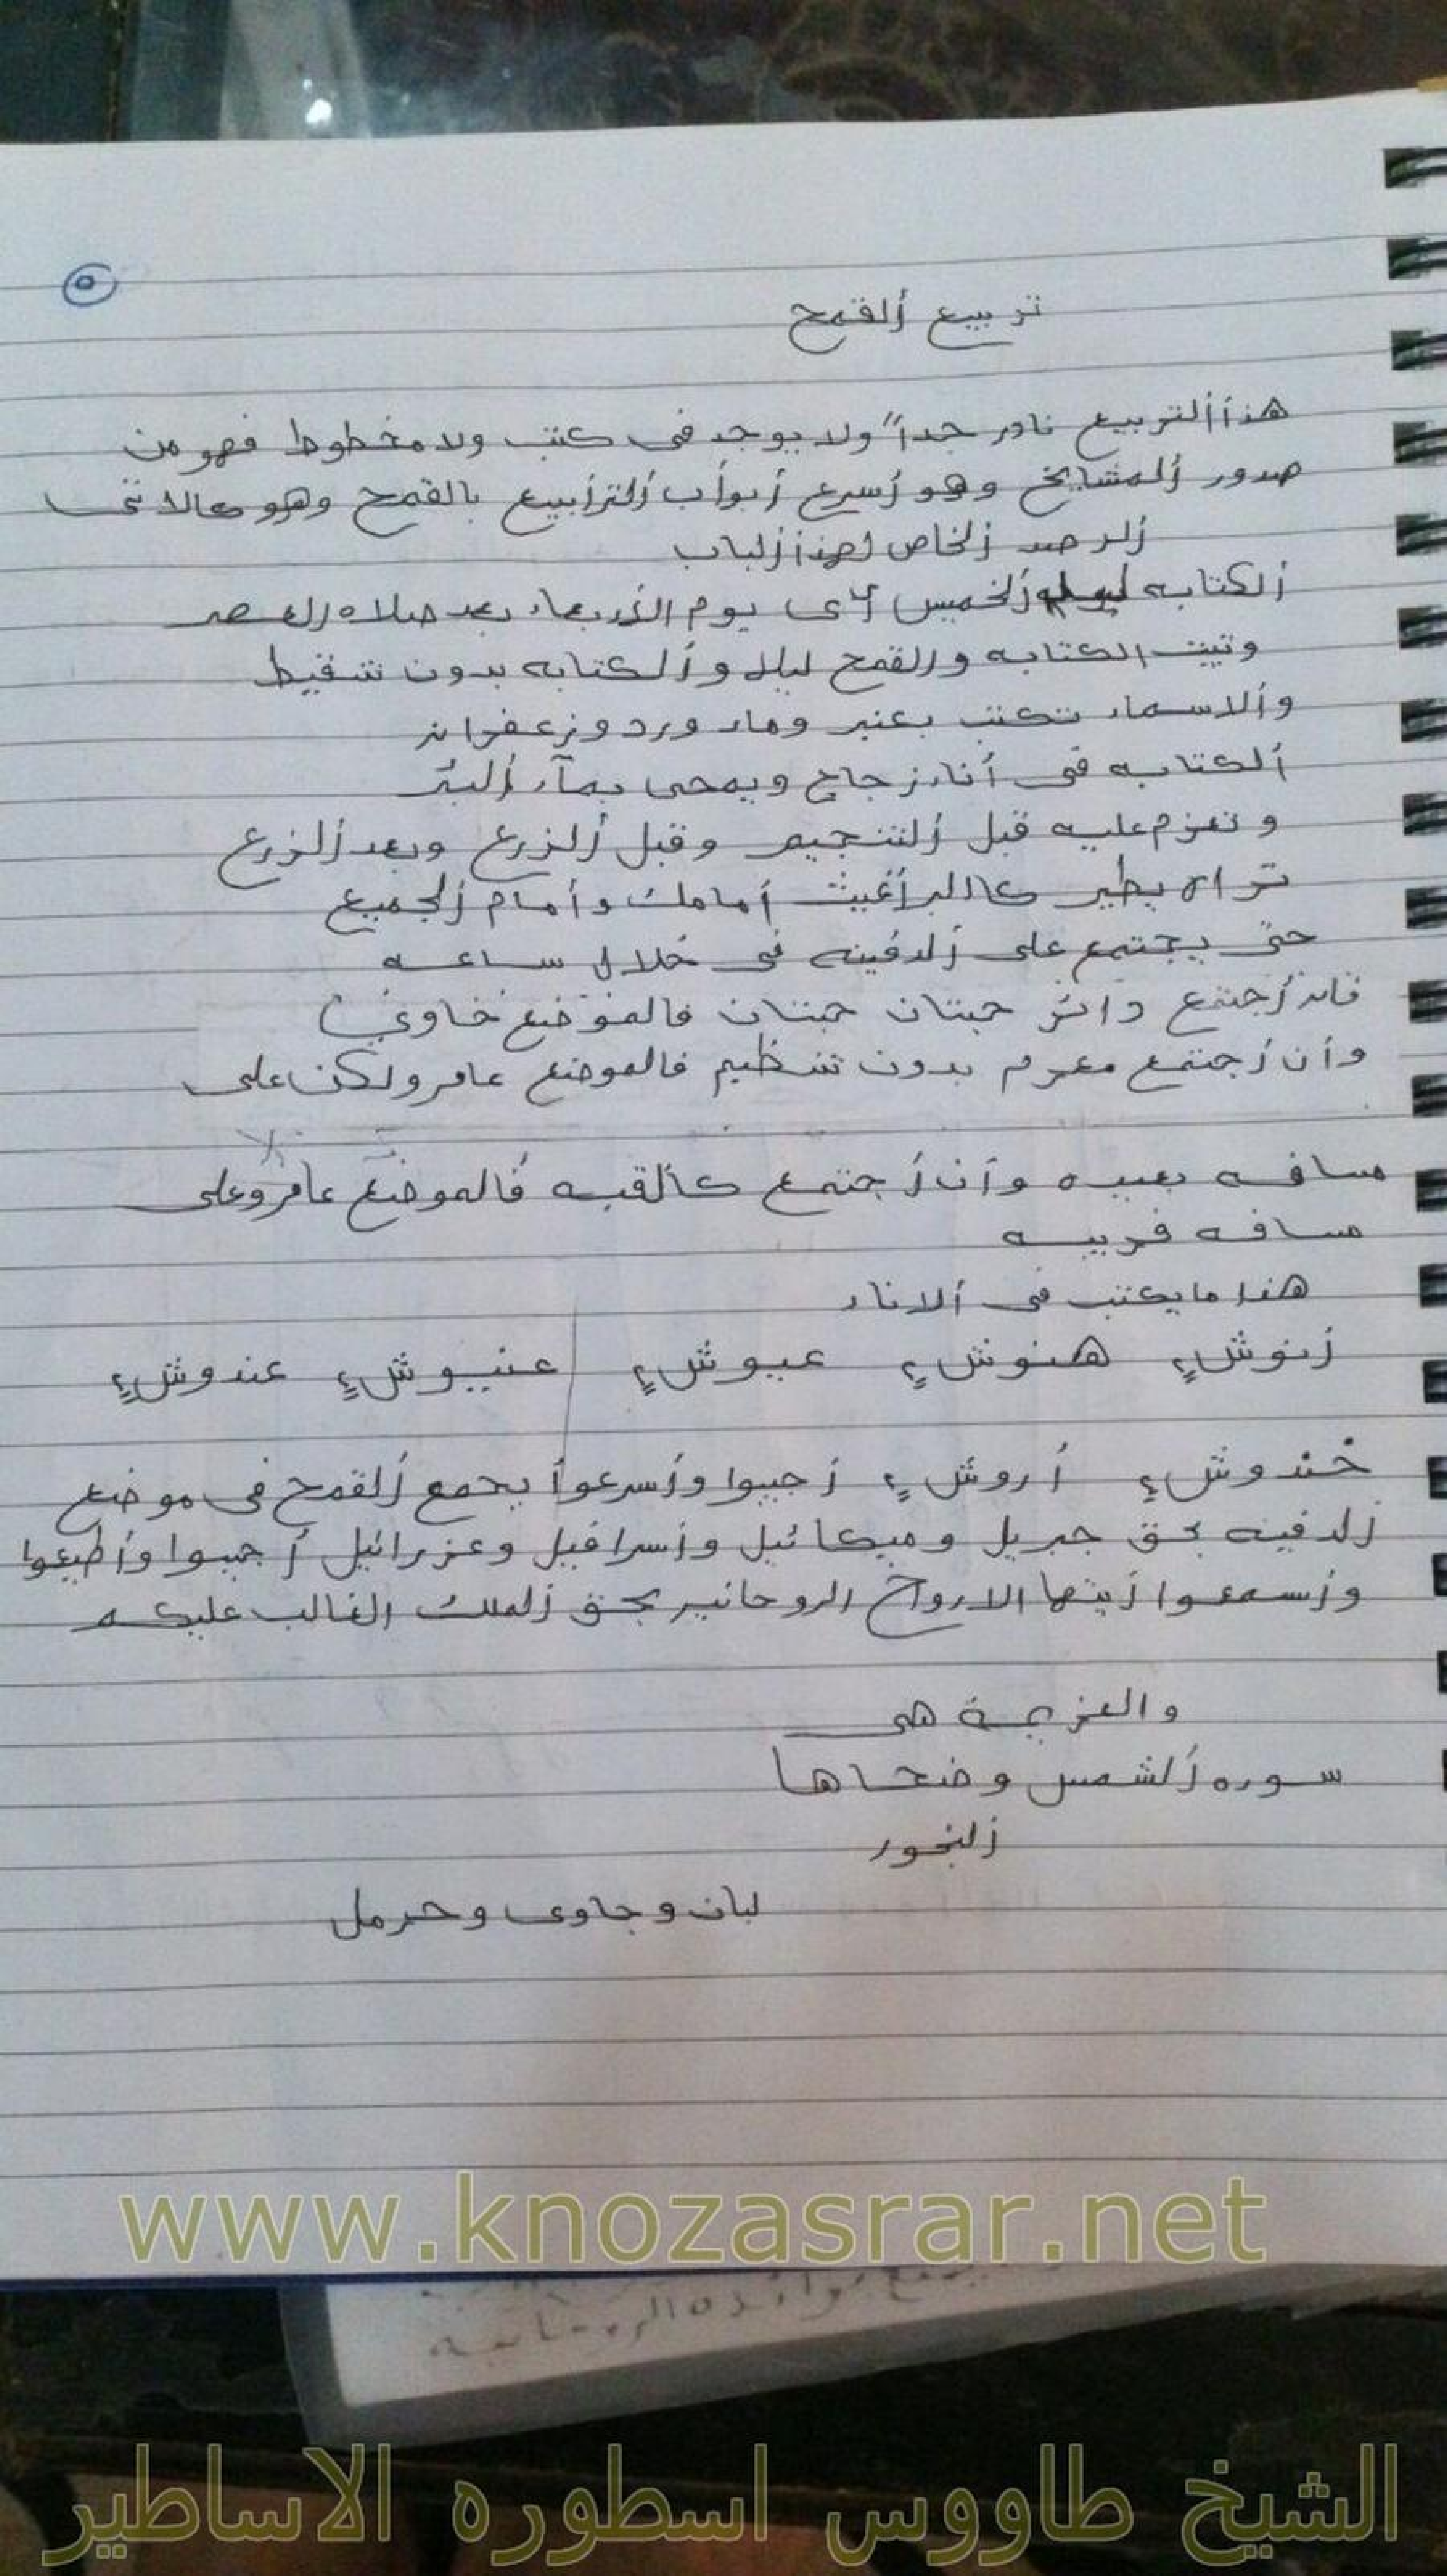 ٥
تربيع ألقمح
هذأ ألتربيع نادر جداً ولا يوجد فى كتب ولا مخطوط فهو من
صدور ألمشايخ وهو أسرع أبوأب ألترأبيع بالقمح وهو كالاتى
ألرصد ألخاص لهذأ ألباب
ألكتابه ليله ألخميس أى يوم الأربعاء بعد صلاه العصر
وتبيت الكتابه والقمح ليلا وألكتابه بدون تنقيط
وألاسماء تكتب بعنبر وماء ورد وزعفران
ألكتابه فى أناء زجاج ويمحى بمآء ألبئر
وتعزم عليه قبل ألتنجيم وقبل ألزرع وبعد ألزرع
تراه يطير كالبرأغيث أمامك وأمام ألجميع
حتى يجتمع على ألدفينه فى خلال ساعه
فان أجتمع حبتان حبتان فالموضع خاوي
وأن أجتمع معرم بدون تنظيم فالموضع عامر ولكن على
مسافه بعيده وأن أجتمع كألقبه فالموضع عامر وعلى
مسافه قريبه
هذا ما يكتب فى ألاناء
أنوشٍ هنوشٍ عبوشٍ عنيوشٍ عندوشٍ
خندوشٍ أروشٍ أجيبوا وأسرعوأ بجمع ألقمح فى موضع
ألدفينه بحق جبريل وميكائيل وأسرافيل وعزرائيل أجيبوا وأطيعوا
وأسمعوا أيتها الارواح الروحانيه بحق ألملك الغالب عليكم
والعزيمة هى
سوره ألشمس وضحاها
ألبخور
لبان وجاوى وحرمل
www.knozasrar.net
الشيخ طاووس اسطوره الاساطير